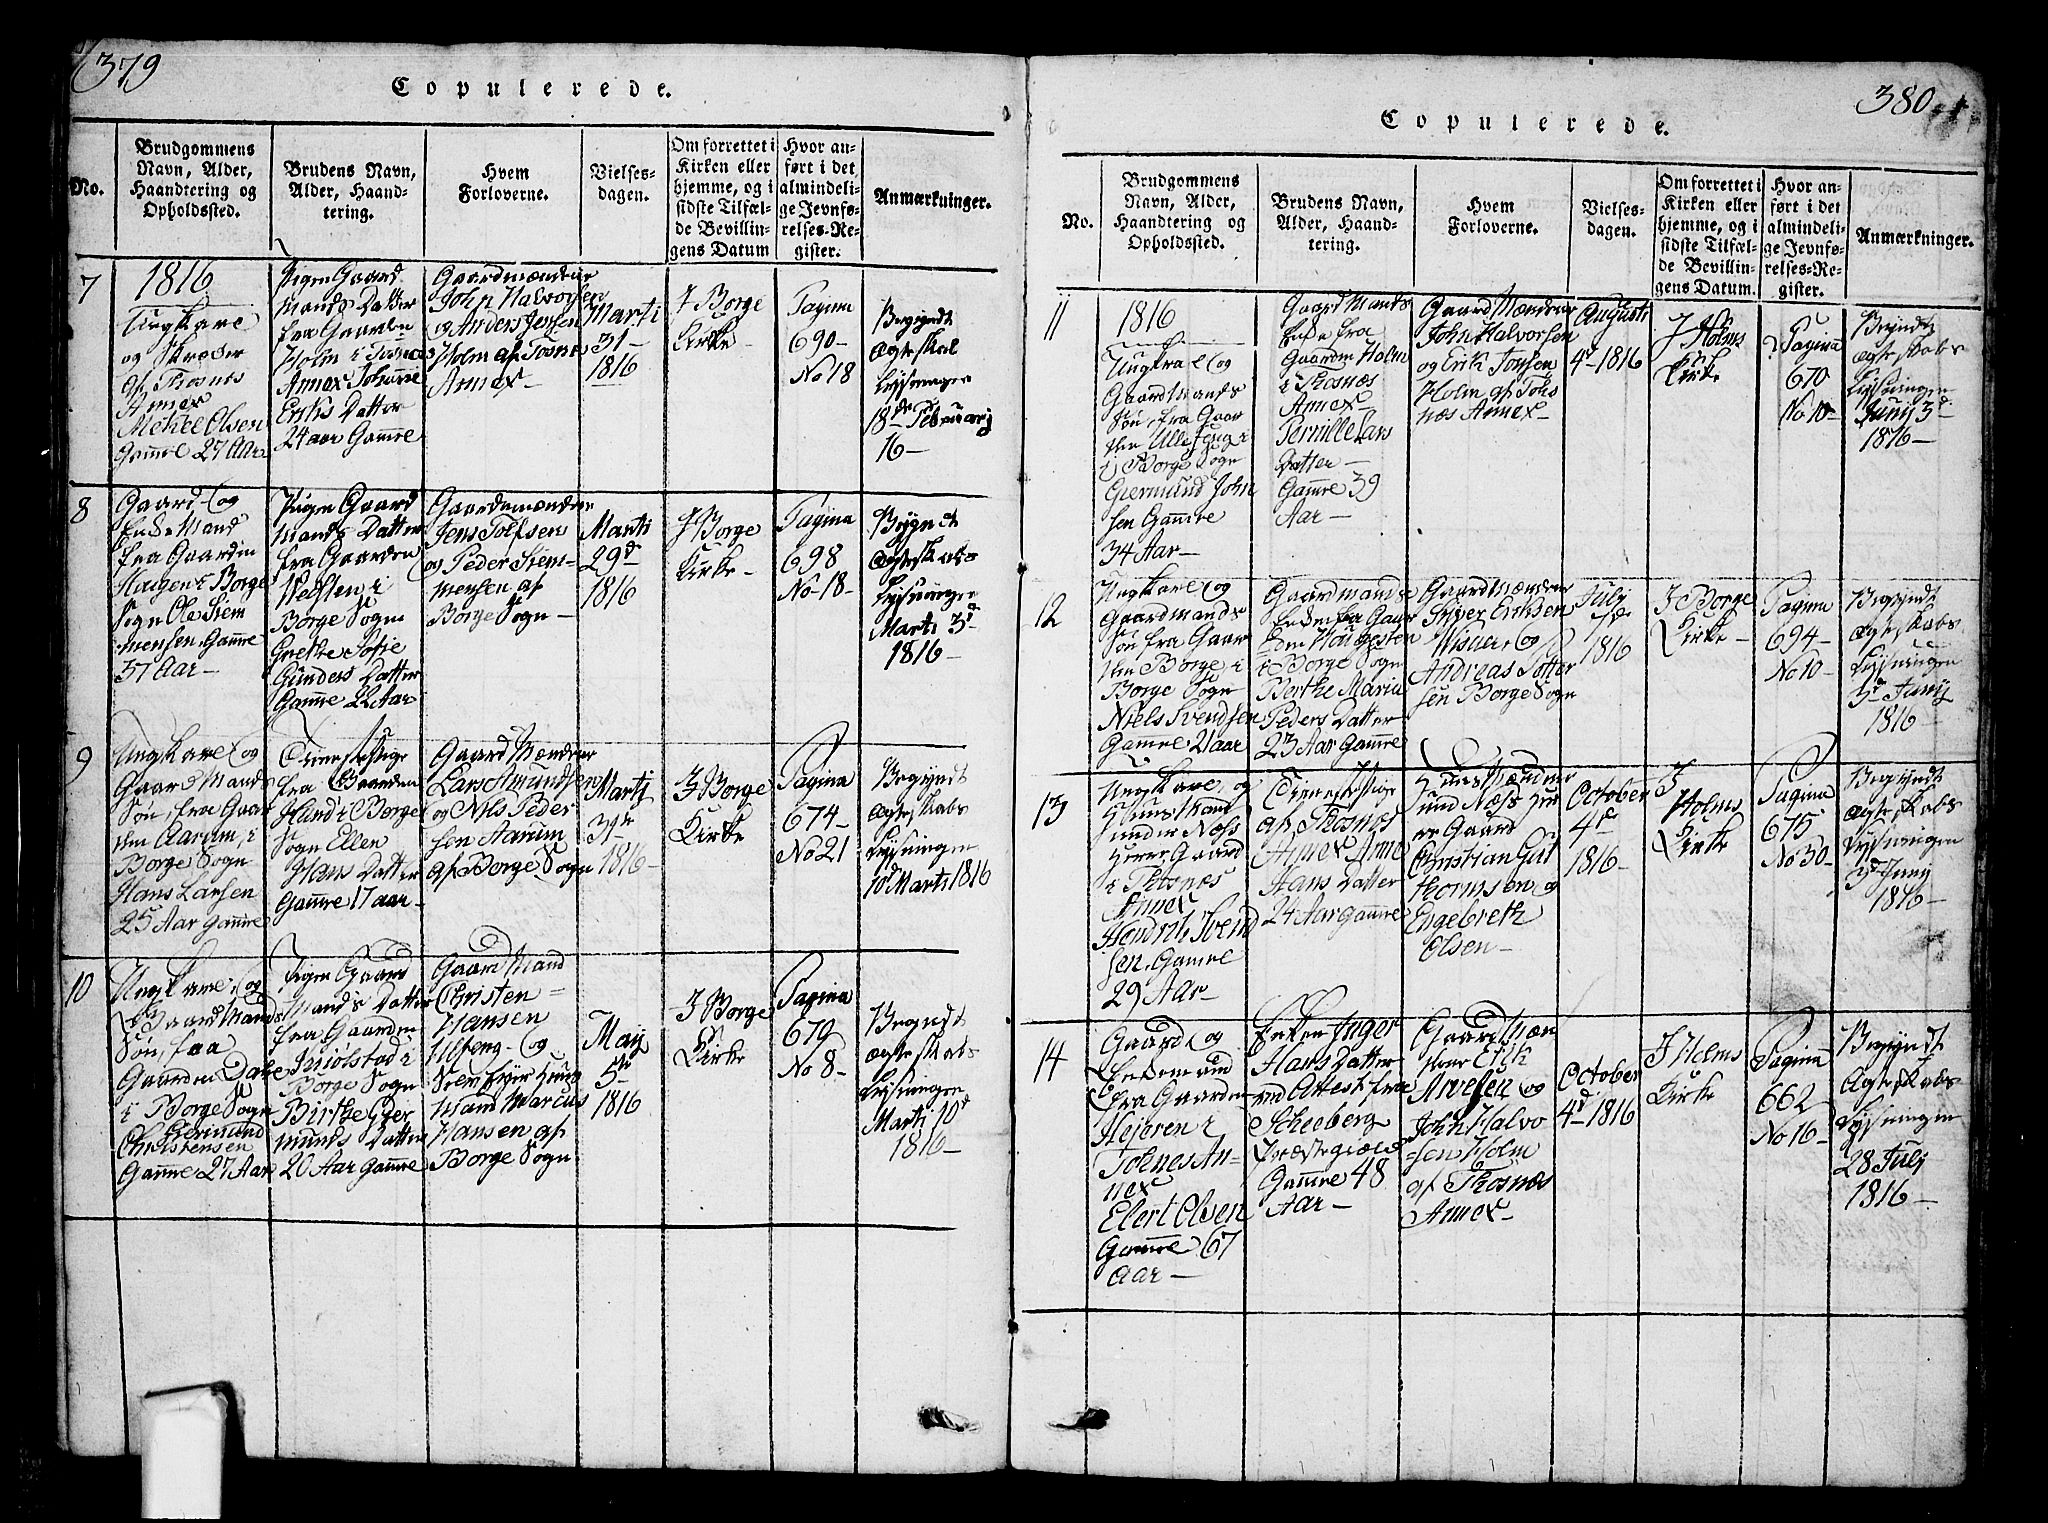 379
Copulerede.
No.
Brudgommens
Navn, Alder,
Haandtering og
Opholdssted.
Brudens Navn,
Alder, Haand-
tering.
Hvem
Forloverne.
Vielses-
dagen.
Om forrettet i
Kirken eller
hjemme, og i
sidste Tilfæl-
de Bevillin-
gens Datum
Hvor an-
ført i det
almindeli-
ge Jevnfø-
relses-Re-
gister.
Anmærkninger.
7
1816
Ungkare
og Skræder
af Thosnes
Annex
Mekel Olsen
Gamle 27 Aar
Pigen Gaard
Mands Datter
fra Gaarden
Holm i Tosnæs
Annex Johanne
Eriks Datter
24 aar Gamle
Gaardmændene
John Halvorsen
og Anders Jensen
Holm af Tosnes
Annex
Marti
31
1816
I Borge
Kirke
Pagina
690
No 18
Begyndt
Ægteskab
Lysningen
18de Februarij
16
8
Gaard og
Enke Mand
fra Gaarden
Haugen i Borge
Sogn Ole Stem
mensen Gamle
57 Aar
Pigen Gaard
Mands Datter
fra Gaarden
i
Borge Sogn
Grethe Sofie
Gunders Datter
Gamle 22 Aar
Gaardemændene
Jens Tolfsen
og Peder Stem-
mensen af
Borge Sogn
Marti
29d
1816
I Borge
Kirke
Pagina
698
No 18
Begyndt
Ægteskabs
Lysningen
Marti 3d
1816
9
Ungkare og
Gaard Mands
Søn, fra Gaar
den Aarum, i
Borge Sogn
Hans Larsen
25 Aar Gamle
Tienestepige
fra Gaarden
Hund i Borge
Sogn Ellen
Hans Datter
Gamle 17 aar
Gaard Mændene
Lars Amundsen
og Nils Peder
sen Aarum
af Borge Sogn
Marti
31te
1816
I Borge
Kirke
Pagina
674
No 21
Begyndt
Ægteskabs
Lysningen
10d Marti 1816
10
Ungkare, og
Gaard Mands
Søn, fra
Gaarden Dale
i Borge Sogn
Giermund
Christensen
Gamle 27 Aar
Pigen Gaard
Mands Datter
fra Gaarden
Miølstad i
Borge Sogn
Birthe Gier
munds Datter
20 Aar Gamle
Gaard Mand
Christen
Hansen
Ulfeng og
Huus
Mand Marcus
Hansen af
Borge Sogn
Maij
5te
1816
I Borge
Kirke
Pagina
679
No 8
Begyndt
Ægteskabs
Lysningen
Marti 10d
1816
380
Copulerede.
No.
Brudgommens
Navn, Alder,
Haandtering og
Opholdssted.
Brudens Navn,
Alder, Haand-
tering.
Hvem
Forloverne.
Vielses-
dagen.
Om forrettet i
Kirken eller
hjemme, og i
sidste Tilfæl-
de Bevillin-
gens Datum.
Hvor an-
ført i det
almindeli-
ge Jevnfø-
relses-Re-
gister.
Anmærkninger.
11
1816
Ungkarel og
Gaard Mands
Søn, fra Gaar
den Ulfeng i
i Borge Sogn
Giermund John
sen Gamle
34 Aar
Gaard Mands
Enke fra
Gaarden Holm
i Thosnæs
Annex
Pernille Lars
Datter
Gamle 39
Aar
Gaard Mændene
John Halvorsen
og Erik Jonsen
Holm af Tohs
næs Annex
Augusti
4d 1816
I Holms
Kirke
Pagina
670
No 10
Begyndt
Ægteskabs
Lysningen
Junij 3d
1816
12
Ungkare og
Gaardmands
Søn fra Gaar
den Borge i
Borge Sogn
Niels Svendsen
Gamle 21 aar
Gaardmands
Enken fra Gaar
den Haugesten
i Borge Sogn
Berthe Maria
Peders Datter
23 Aar Gamle
Gaard Mændene
Syver Eriksen
Visuer og
Andreas Totter
sen Borge Sogn
July
7de
1816
I Borge
Kirke
Pagina
694
No 10
Begyndt
Ægteskabs
Lysningen
3d Junij
1816
13
Ungkare, og
Huus Mand
under Næss
Herre Gaard
i Thosnæs
Annex
Hendrik Svend
sen, Gamle
29 Aar
Tienestepige
af Thosnæs
Annex Anne
Hans Datter
24 Aar Gamle
Huus Mændene
und Næss Her
re Gaard
Christian Gut
thormsen og
Engebreth
Olsen
October
4d
1816
I
Holms
Kirke
Pagina
675
No 30
Begyndt
Ægteskabs
Lysningen
3d Junij
1816
14
Gaard og
Enkemand
fra Gaarden
i
Tohnes An-
nex
Elert Olsen
Gamle 67
Aar
Enken Inger
Hans Datter
ved Attest fra
Skeeberg
Præstegiæld
Gamle 48
Aar
Gaard Mæn
dene Erik
Arvesen og
John Halvo
sen Holm
af Thosnæs
Annex
October
4d 1816
I Holms
Kirke
Pagina
662
No 16
Begyndt
Ægteskabs
Lysningen
28 Julij
1816